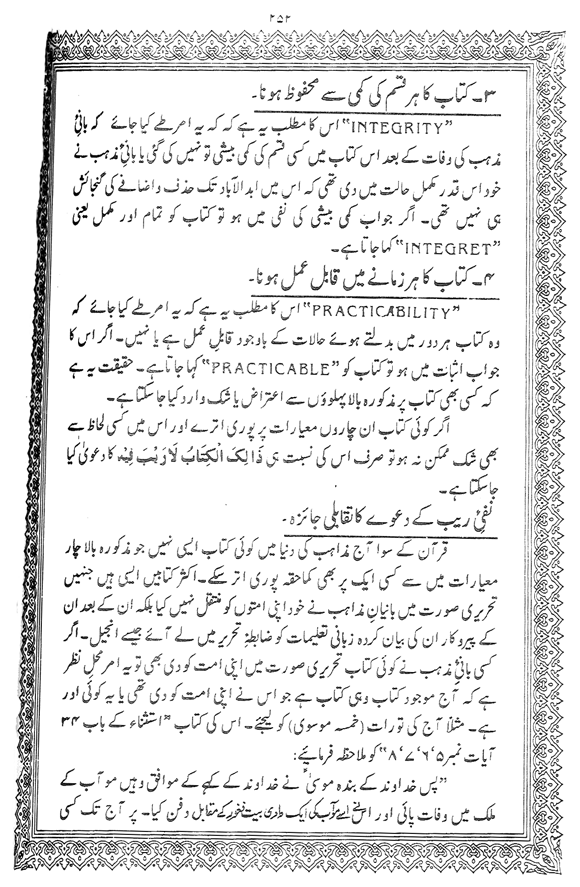 ۲۵۲
۳۔ کتاب کا ہر قسم کی کمی سے محفوظ ہونا۔
”INTEGRITY“ اس کا مطلب یہ ہے کہ کہ یہ امر طے کیا جائے کہ بانیٔ
مذہب کی وفات کے بعد اس کتاب میں کسی قسم کی کمی بیشی تو نہیں کی گئی یا بانیٔ مذہب نے
خود اس قدر مکمل حالت میں دی تھی کہ اس میں ابدالآباد تک حذف و اضافے کی گنجائش
ہی نہیں تھی۔ اگر جواب کمی بیشی کی نفی میں ہو تو کتاب کو تمام اور مکمل یعنی
”INTEGRET“ کہا جاتا ہے۔
۴۔ کتاب کا ہر زمانے میں قابل عمل ہونا۔
”PRACTICABILITY“ اس کا مطلب یہ ہے کہ یہ امر طے کیا جائے کہ
وہ کتاب ہر دور میں بدلتے ہوئے حالات کے باوجود قابلِ عمل ہے یا نہیں۔ اگر اس کا
جواب اثبات میں ہو تو کتاب کو ”PRACTICABLE“ کہا جاتا ہے۔ حقیقت یہ ہے
کہ کسی بھی کتاب پر مذکورہ بالا پہلوؤں سے اعتراض یا شک وارد کیا جا سکتا ہے۔
اگر کوئی کتاب ان چاروں معیارات پر پوری اترے اور اس میں کسی لحاظ سے
بھی شک ممکن نہ ہو تو صرف اس کی نسبت ہی ذَالِكَ الْكِتَابُ لَا رَيْبَ فِيْهِ کا دعویٰ کیا
جا سکتا ہے۔
نفیٔ ریب کے دعوے کا تقابلی جائزہ۔
قرآن کے سوا آج مذاہب کی دنیا میں کوئی کتاب ایسی نہیں جو مذکورہ بالا چار
معیارات میں سے کسی ایک پر بھی کماحقہ پوری اتر سکے۔ اکثر کتابیں ایسی ہیں جنہیں
تحریری صورت میں بانیان مذاہب نے خود اپنی امتوں کو منتقل نہیں کیا بلکہ ان کے بعد ان
کے پیروکار ان کی بیان کردہ زبانی تعلیمات کو ضابطۂ تحریر میں لے آئے جیسے انجیل۔ اگر
کسی بانیٔ مذہب نے کوئی کتاب تحریری صورت میں اپنی امت کو دی بھی تو یہ امر محل نظر
ہے کہ آج موجود کتاب وہی کتاب ہے جو اس نے اپنی امت کو دی تھی یا یہ کوئی اور
ہے۔ مثلاً آج کی تورات (خمسہ موسوی) کو لیجئے۔ اس کی کتاب ”استثناء کے باب ۳۴
آیات نمبر ۵‘۶‘۷‘۸“ کو ملاحظہ فرمائیے:
”پس خداوند کے بندہ موسیٰؑ نے خداوند کے کہے کے موافق وہیں موآب کے
ملک میں وفات پائی اور اس نے اسے موآب کی ایک وادی بیت فغور کے مقابل دفن کیا۔ پر آج تک کسی